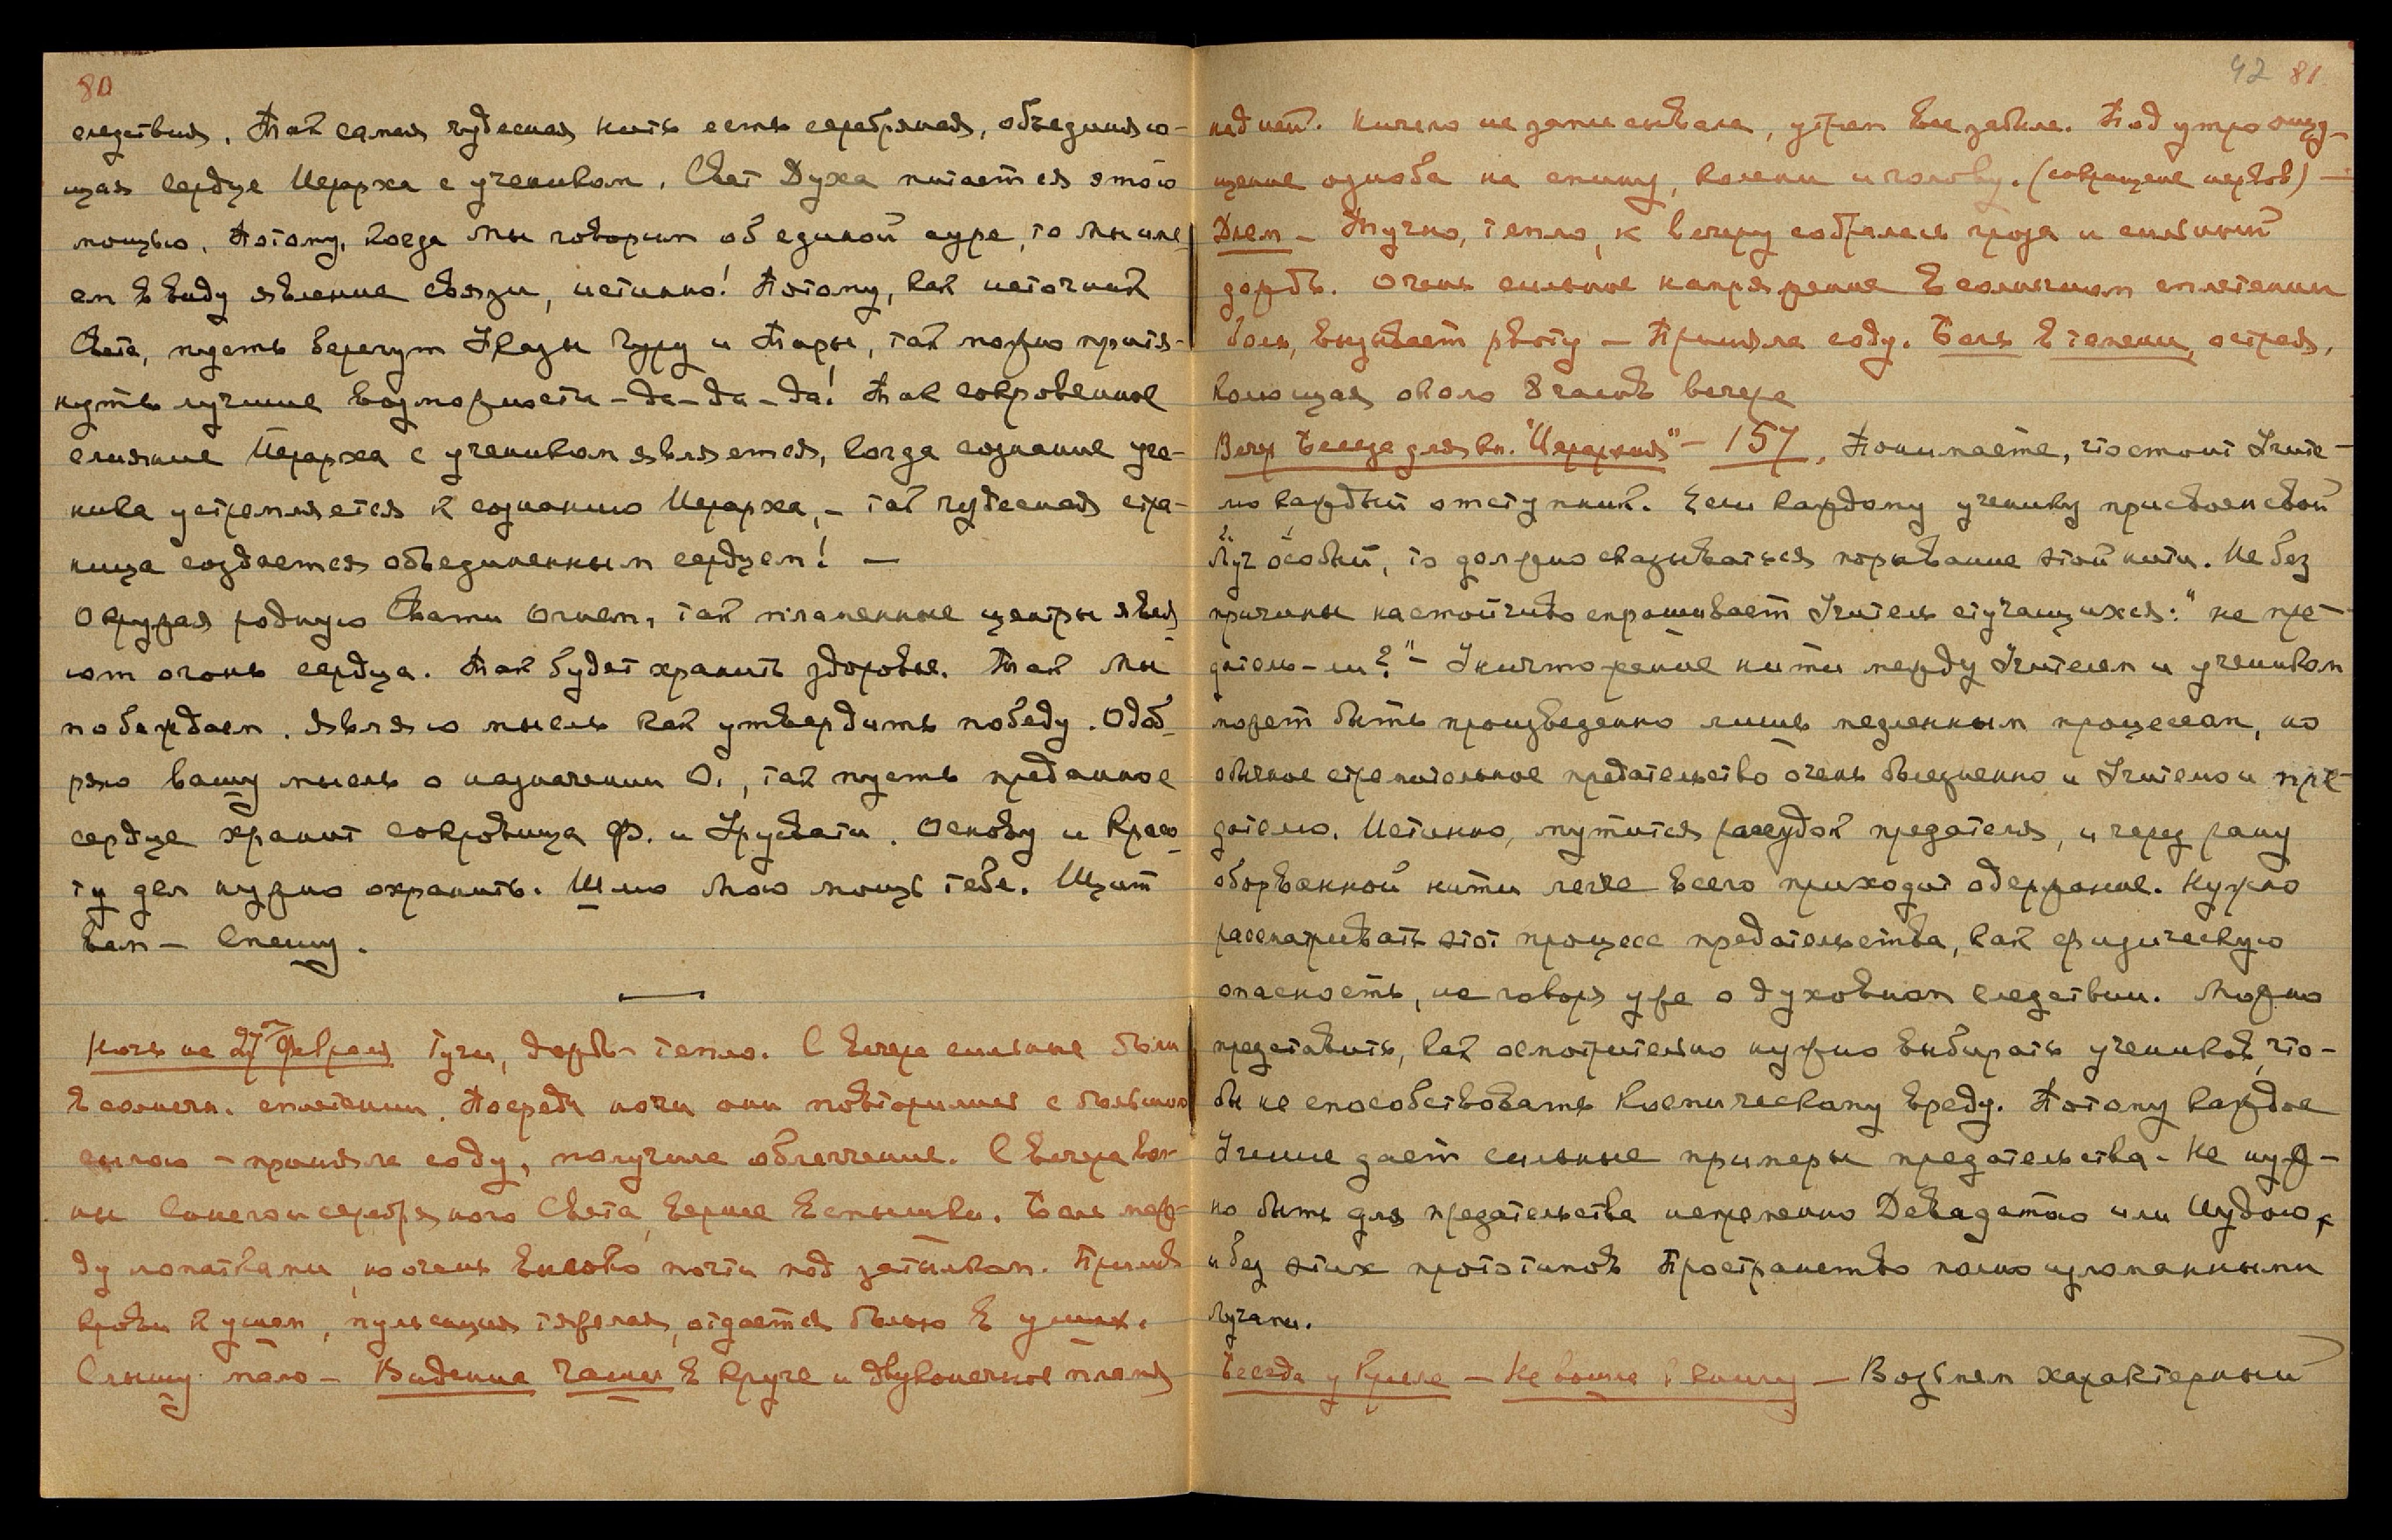 80
следствия. Так самая чудесная нить есть серебряная, объединяю-
щая сердце Иерарха с учеником. Свет Духа питается этою
мощью. Потому, когда Мы говорим об единой ауре, то Мы име-
ем в виду явление связи, истинно! Потому, как источник
Света, пусть берегут Указы Гуру и Тары, так можно притя-
нуть лучшие возможности – да – да – да! Так сокровенное
слияние Иерарха с учеником является, когда сознание уче-
ника устремляется к сознанию Иерарха, – так чудесная стра-
ница создается объединенным сердцем! —
Окружая родную Свати Огнем, так пламенные центры явля-
ют огонь сердца. Так будет хранить здоровье. Так Мы
побеждаем. Являю мысль как утвердить победу. Одоб-
ряю вашу мысль о назначении О., так пусть преданное
сердце хранит сокровища Ф. и Урусвати. Основу и красо-
ту дел нужно охранить. Шлю Мою мощь тебе. Щит
вам – Спешу.
—
Ночь на 27ое Февраля Тучи, дождь – тепло. С вечера сильные боли
в солнечн. сплетении. Посреди ночи они повторились с большою
силою – приняла соду, получила облегчение. С вечера вол-
ны Синего и серебряного Света, вернее вспышки. Боли меж-
ду лопатками, но очень высоко почти под затылком. Прилив
крови к ушам, пульсация тяжелая, отдается болью в ушах.
Слышу мало – Видение Чаши в круге и двуконечное пламя
42 81
над ней. Ничего не записывала, утром все забыла. Под утро ощу-
щение озноба на спину, колени и голову. (сокращение нервов) —
Днем – Тучно, тепло, к вечеру собралась гроза и сильный
дождь. Очень сильное напряжение в солнечном сплетении
боль, вызывает рвоту – Приняла соду. Боль в темени, острая,
колющая около 8 часов вечера
Вечер Беседа для кн. "Иерархия" – 157. Понимаете, что стоит Учите-
лю каждый отступник. Если каждому ученику присвоен свой
Луч особый, то должно сказываться порывание этой нити. Не без
причины настойчиво спрашивает Учитель стучащихся: "не пре-
датель-ли?" – Уничтожение нити между Учителем и учеником
может быть произведенно лишь медленным процессом, но
обычное стремительное предательство очень болезненно и Учителю и пре-
дателю. Истинно, мутится рассудок предателя, и через рану
оборванной нити легче всего приходит одержание. Нужно
рассматривать этот процесс предательства, как физическую
опасность, не говоря уже о духовном следствии. Можно
представить, как осмотрительно нужно выбирать учеников, что-
бы не способствовать космическому вреду. Потому каждое
Учение дает сильные примеры предательства – Не нуж-
но быть для предательства непременно Девадаттою или Иудою,
и без этих прототипов Пространство полно изломанными
Лучами.
Беседа у Кресла – Не вошла в книгу – Возьмем характерный